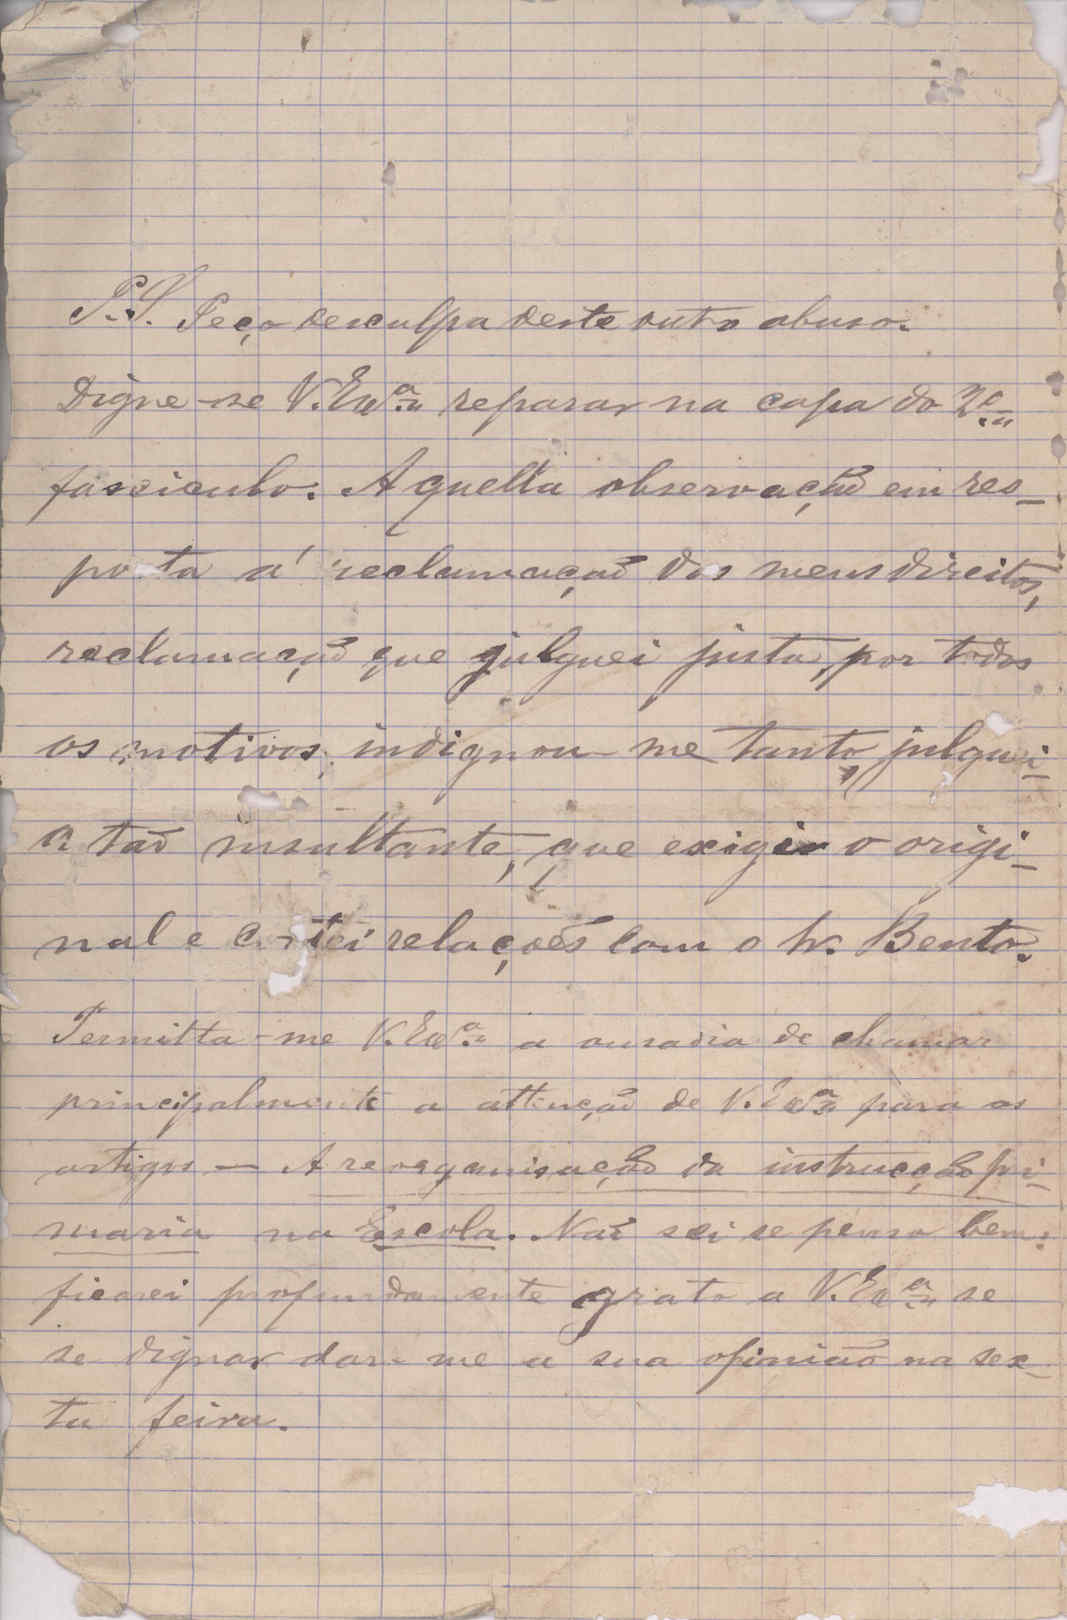 P.S. Peço desculpa deste outro abuso.
Digne-se V. Exª. reparar na capa do 2º.
fasciculo. Aquella observação em res-
posta á reclamação dos meus direitos,
reclamação que julguei justa, por todos
os motivos, indignou-me tanto, julguei-
a tão insultante, que exigi o origi-
nal e cortei relações com o Sr. Bento.
Permitta-me V. Exª. a ousadia de chamar
principalmente a attenção de V. Exª. para os
artigos — A reorganisação da instrucção pri-
maria na Escola. Não sei se penso bem:
ficarei profundamente grato a V. Exª. se
se dignar dar-me a sua opinião na sex-
ta feira.